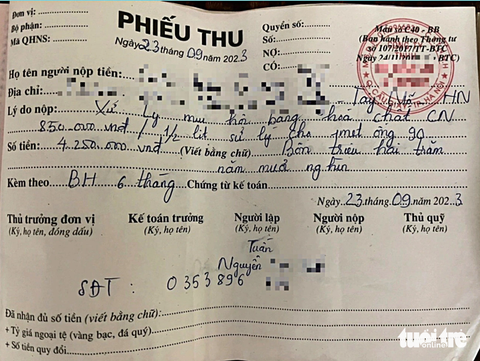 Đơn vị:
Bộ phận:
Mã QHNS:
PHIẾU THU
Ngày 23 tháng 09 năm 2023
Quyển số:
Số:
NỢ:
CÓ:
Mẫu số C40 - BB
(Ban hành theo Thông tư
số 107/2017/TT-BTC
Ngày 24/11/ BTC)
Họ tên người nộp tiền:
Địa chỉ: Tây HN
Lý do nộp: Xử lý mùi hôi bằng hóa chất CN
850.000 vnđ / 1/2 lít sử lý cho 1 mét ống 90
Số tiền: 4.250.000 vnđ (Viết bằng chữ): Bốn triệu hai trăm
năm mươi nghìn
Kèm theo: BH 6 tháng Chứng từ kế toán
Ngày 23 tháng 09 năm 2023
Thủ trưởng đơn vị Kế toán trưởng Người lập Người nộp Thủ quỹ
(Ký, họ tên, đóng dấu) (Ký, họ tên) (Ký, họ tên) (Ký, họ tên) (Ký, họ tên)
Tuấn
Nguyễn
SĐT: 0353896
Đã nhận đủ số tiền (viết bằng chữ):
+ Tỷ giá ngoại tệ (vàng bạc, đá quý)
+ Số tiền quy đổi
tuổi trẻ
online